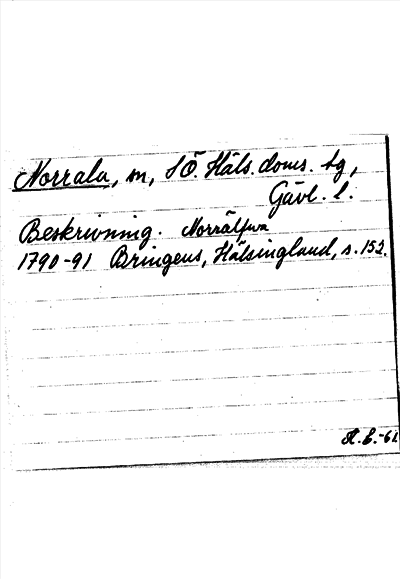 Norrala, sn, SÖ. Häls. doms. tg,
Gävl. l.
Beskrivning. Norrälfwa
1790-91 Bringéus, Hälsingland, s. 152.
A.E.-61